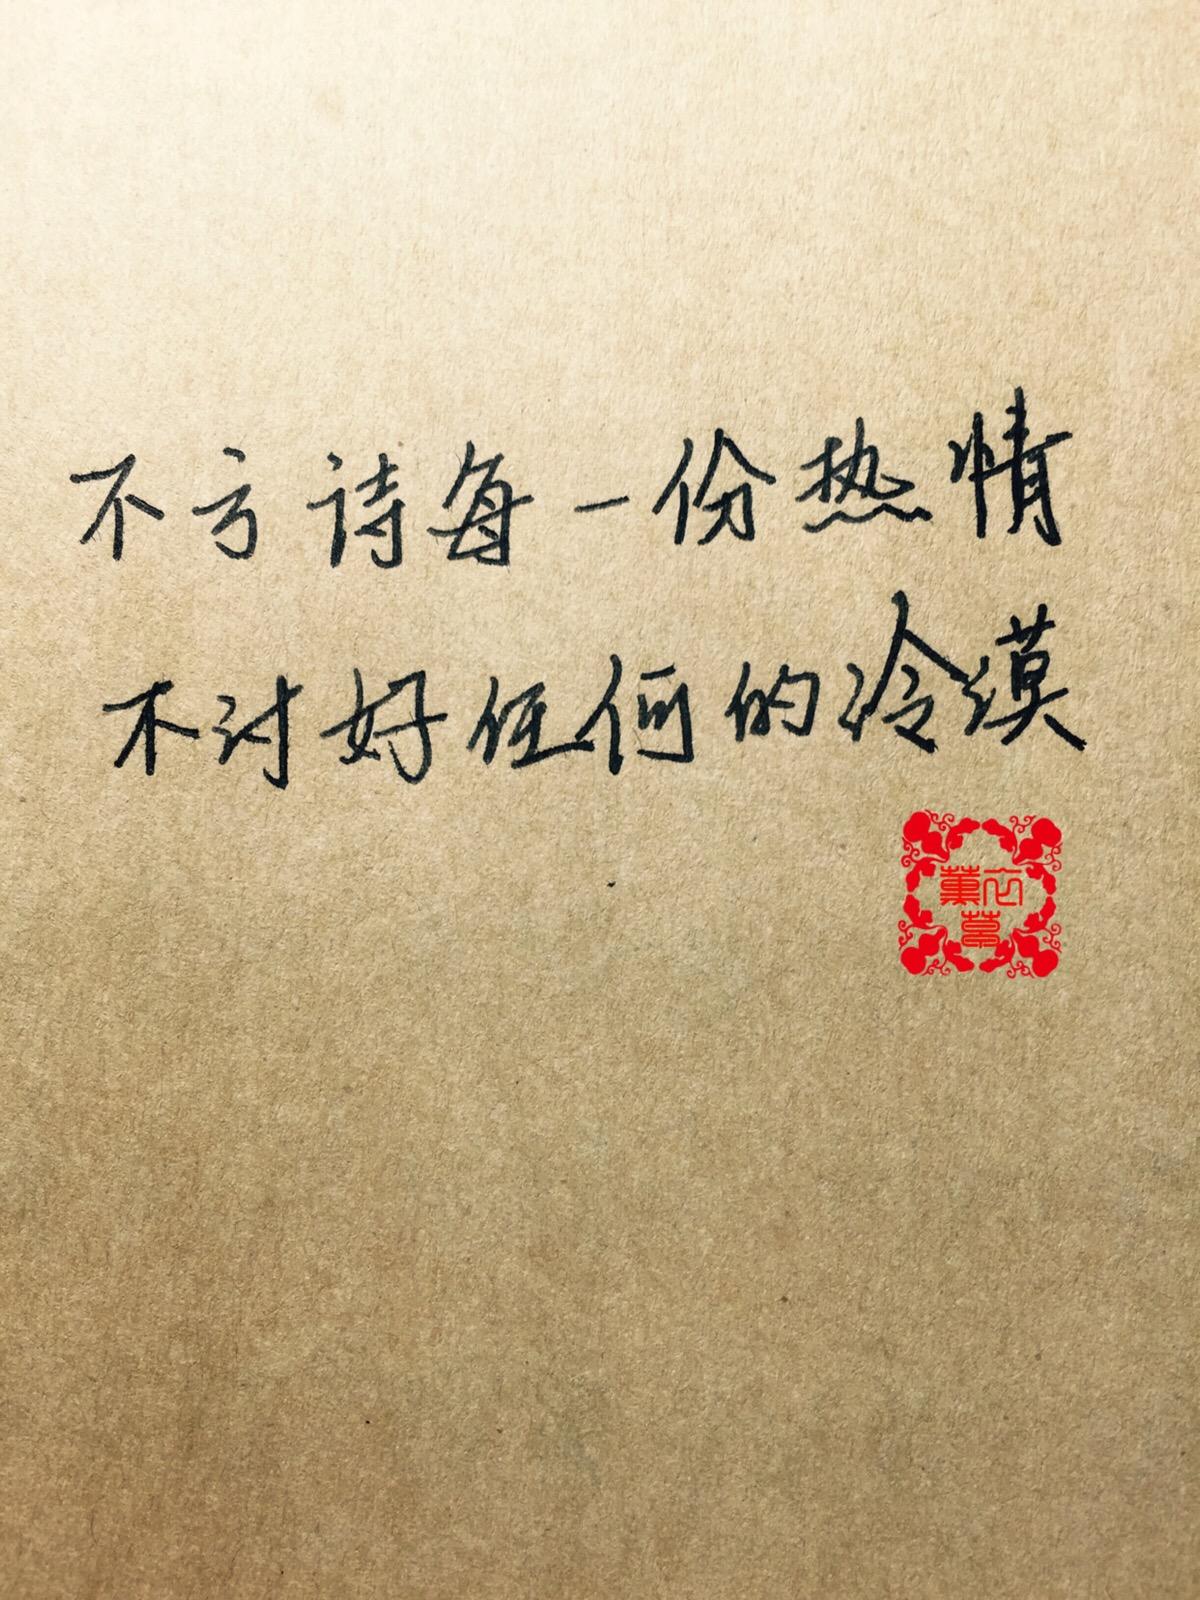 不亏诗每一份热情
不讨好任何的冷漠
薰衣
草